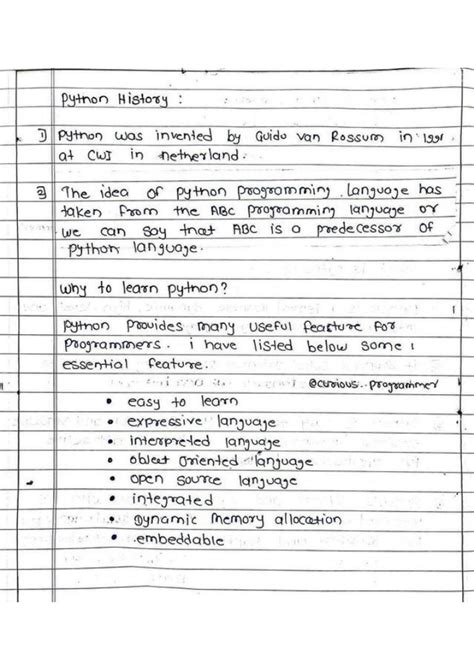 Python History :
1) Python was invented by Guido van Rossum in 1991
at CWI in netherland.
2) The idea of python programming language has
taken from the ABC programming language or
we can say that ABC is a predecessor of
python language.
why to learn python?
python provides many useful feature for
programmers. i have listed below some
essential feature.
@curious_.programmer
• easy to learn
• expressive language
• interpreted language
• object oriented language
• open source language
• integrated
• Dynamic memory allocation
• embeddable